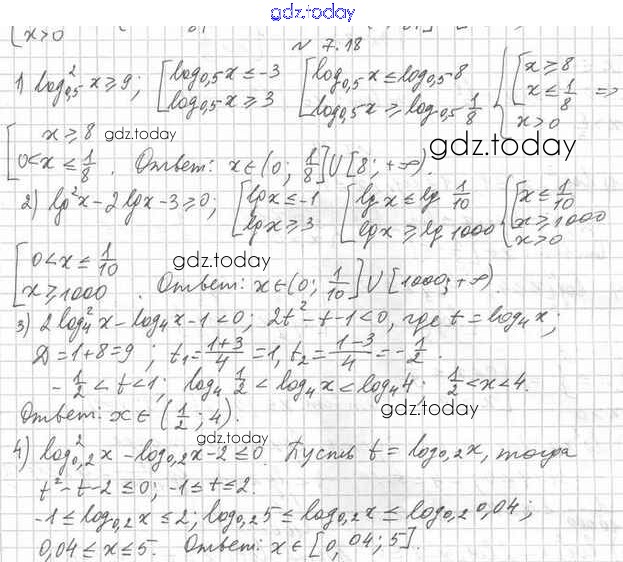 gdz.today
x>0
№ 7.18
1) log²₀,₅ x ≥ 9; [log₀,₅ x ≤ -3 [log₀,₅ x ≤ log₀,₅ 8 { [x ≥ 8
log₀,₅ x ≥ 3 log₀,₅ x ≥ log₀,₅ 1/8 x ≤ 1/8 =>
x>0
[x ≥ 8 gdz.today gdz.today
0<x ≤ 1/8. Ответ: x∈(0; 1/8]U[8; +∞).
2) lg²x - 2lgx - 3 ≥ 0; [lgx ≤ -1 [lgx ≤ lg 1/10 { [x ≤ 1/10
lgx ≥ 3 lgx ≥ lg 1000 x ≥ 1000
x>0
[0<x ≤ 1/10 gdz.today
x ≥ 1000. Ответ: x∈(0; 1/10]U[1000; +∞).
3) 2log²₄x - log₄x - 1 < 0; 2t² - t - 1 < 0, где t = log₄x;
Д = 1+8 = 9; t₁ = (1+3)/4 = 1, t₂ = (1-3)/4 = -1/2.
-1/2 < t < 1; log₄ 1/2 < log₄x < log₄4; 1/2 < x < 4.
Ответ: x∈(1/2; 4). gdz.today
gdz.today
4) log²₀,₂x - log₀,₂x - 2 ≤ 0. Пусть t = log₀,₂x, тогда
t² - t - 2 ≤ 0; -1 ≤ t ≤ 2.
-1 ≤ log₀,₂x ≤ 2; log₀,₂5 ≤ log₀,₂x ≤ log₀,₂0,04;
0,04 ≤ x ≤ 5. Ответ: x∈[0,04; 5].
gdz.today